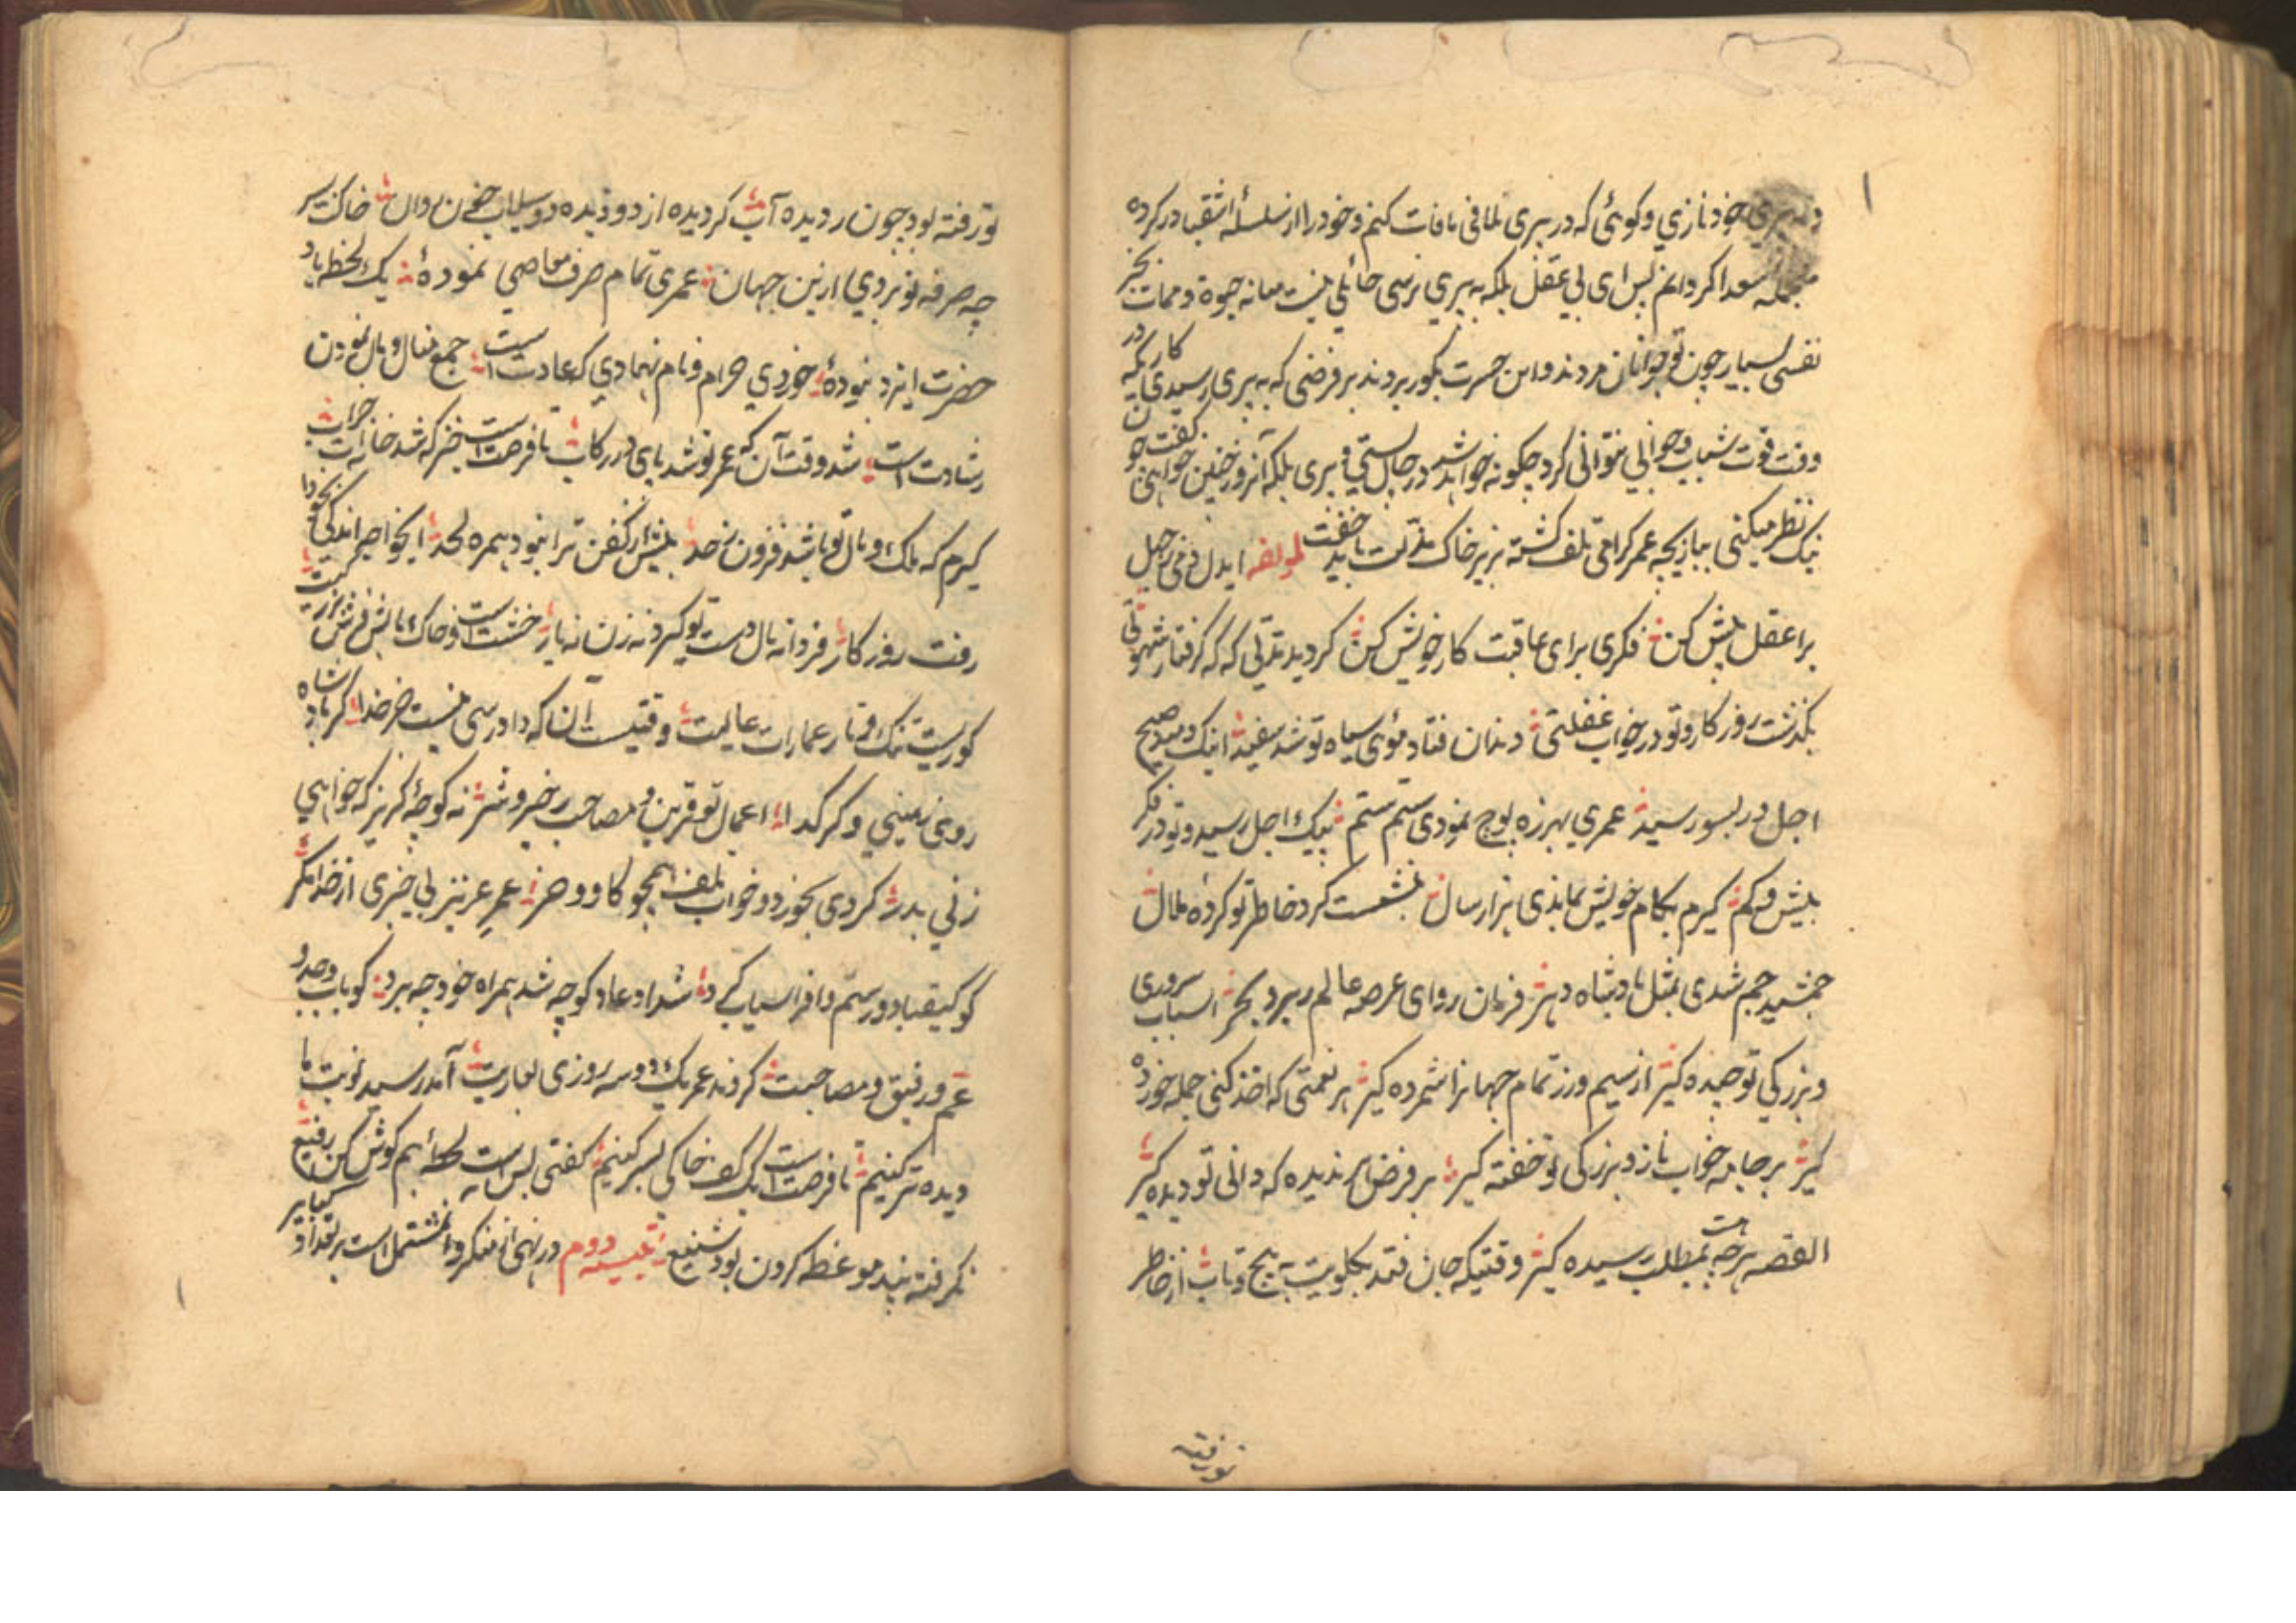 بخود نازي و کوئی که در پیری تلافی مافات کنم و خود را از سلسلهٔ اشقیا در کرده
سعدا کردانم پس ای بی عقل بلکه به پیری نرسی حائلی نیست میانه حیوة و ممات بجز
نفسی بسیار چون تو جوانان مردند و این حسرت بکور بردند بر فرضی که به پیری رسیدی کاریکه در
وقت قوت شباب و جوانی نتوانی کرد چکونه خواهد شد در حال سستی و پیری بلکه آنروز چنین خواهی کفت
نیک نظر میکنی ببازیچه عمر کرامی تلف کشته بزیر خاک مذلت باید خفت لمولفه ایدل دمی
براعقل پیش کن فکری برای عاقبت کار خویش کن کردید مدتی که که کرفتار شهوتی
بکذشت روزکار و تو در خواب غفلتی دندان فتاد موی سیاه تو شد سفید اینک دمید صبح
اجل در بسور رسید عمری بهرزه پوچ نمودی ستم ستم پیک اجل رسید و تو در فکر
بیش و کم کیرم بکام خویش بماندی هزار سال ننشست کرد خاطر تو کرده ملال
جمشید جم شدی بمثل پادشاه دهر فرمان روای عرصه عالم ببر و بحر اسباب سروری
و بزرکی تو چیده کیر از سیم و زر تمام جهانرا شمرده کیر هر نعمتی که اخذ کنی جمله خورده
کیر بر جامه خواب ناز و بزرکی تو خفته کیر بر فرض هر ندیده که دانی تو دیده کیر
القصه هر چه هست بمطلب رسیده کیر وقتیکه جان فتد بکلویت به پیچ و تاب از خاطر
تو رفته
تو رفته بود چون ردیده آب کردیده از دو دیده دو سیلاب خون روان خاکت بسر
چه صرفه تو بردی از این جهان عمری تمام صرف معاصی نمودهٔ یک لحظه یاد
حضرت ایزد نبودهٔ خوردی حرام و نام نهادی که عادت است جمع منال و مال نمودن
رشادت است شد وقت آن که عمر تو شد پای در رکاب تا فرصت است خیز که شد خانه ات خراب
کیرم که ملک و مال تو باشد فزون ز حد بیش از کفن ترا نبود همره لحد ایخواجه اندکی بخود آ
رفت روزکار فردا نه مال دست تو کیرد نه زن نه یار خشت است و خاک بالش و فرش
کوریست تنک و تار عمارات عالیت وقتیست آن که دادرسی نیست جز خدا کر پادشاه
روی زمینی و کر کدا اعمال تو قرین و مصاحب بخیر و شر نه کوچهٔ کریز که خواهی
زنی بدر کردی بخورد و خواب تلف همچو کاو و خر عمرِ عزیز بی خبری از خدا مکر
کو کیقباد و رستم و افراسیاب کی شداد عاد کو چه شد همراه خود چه برد کو باب و جد و
عم و رفیق و مصاحبت کردند عمر یک دو سه روزی بعاریت آمد رسید نوبت ما
دیده تر کنیم تا فرصت است یک کف خاکی بسر کنیم کفتی بس است لحظهٔ هم کوش کن رفیع
نکرفته پند موعظه کردن بود شنیع تنبیه دوم در نهی از منکر و مشتمل است بر تعداد کبایر